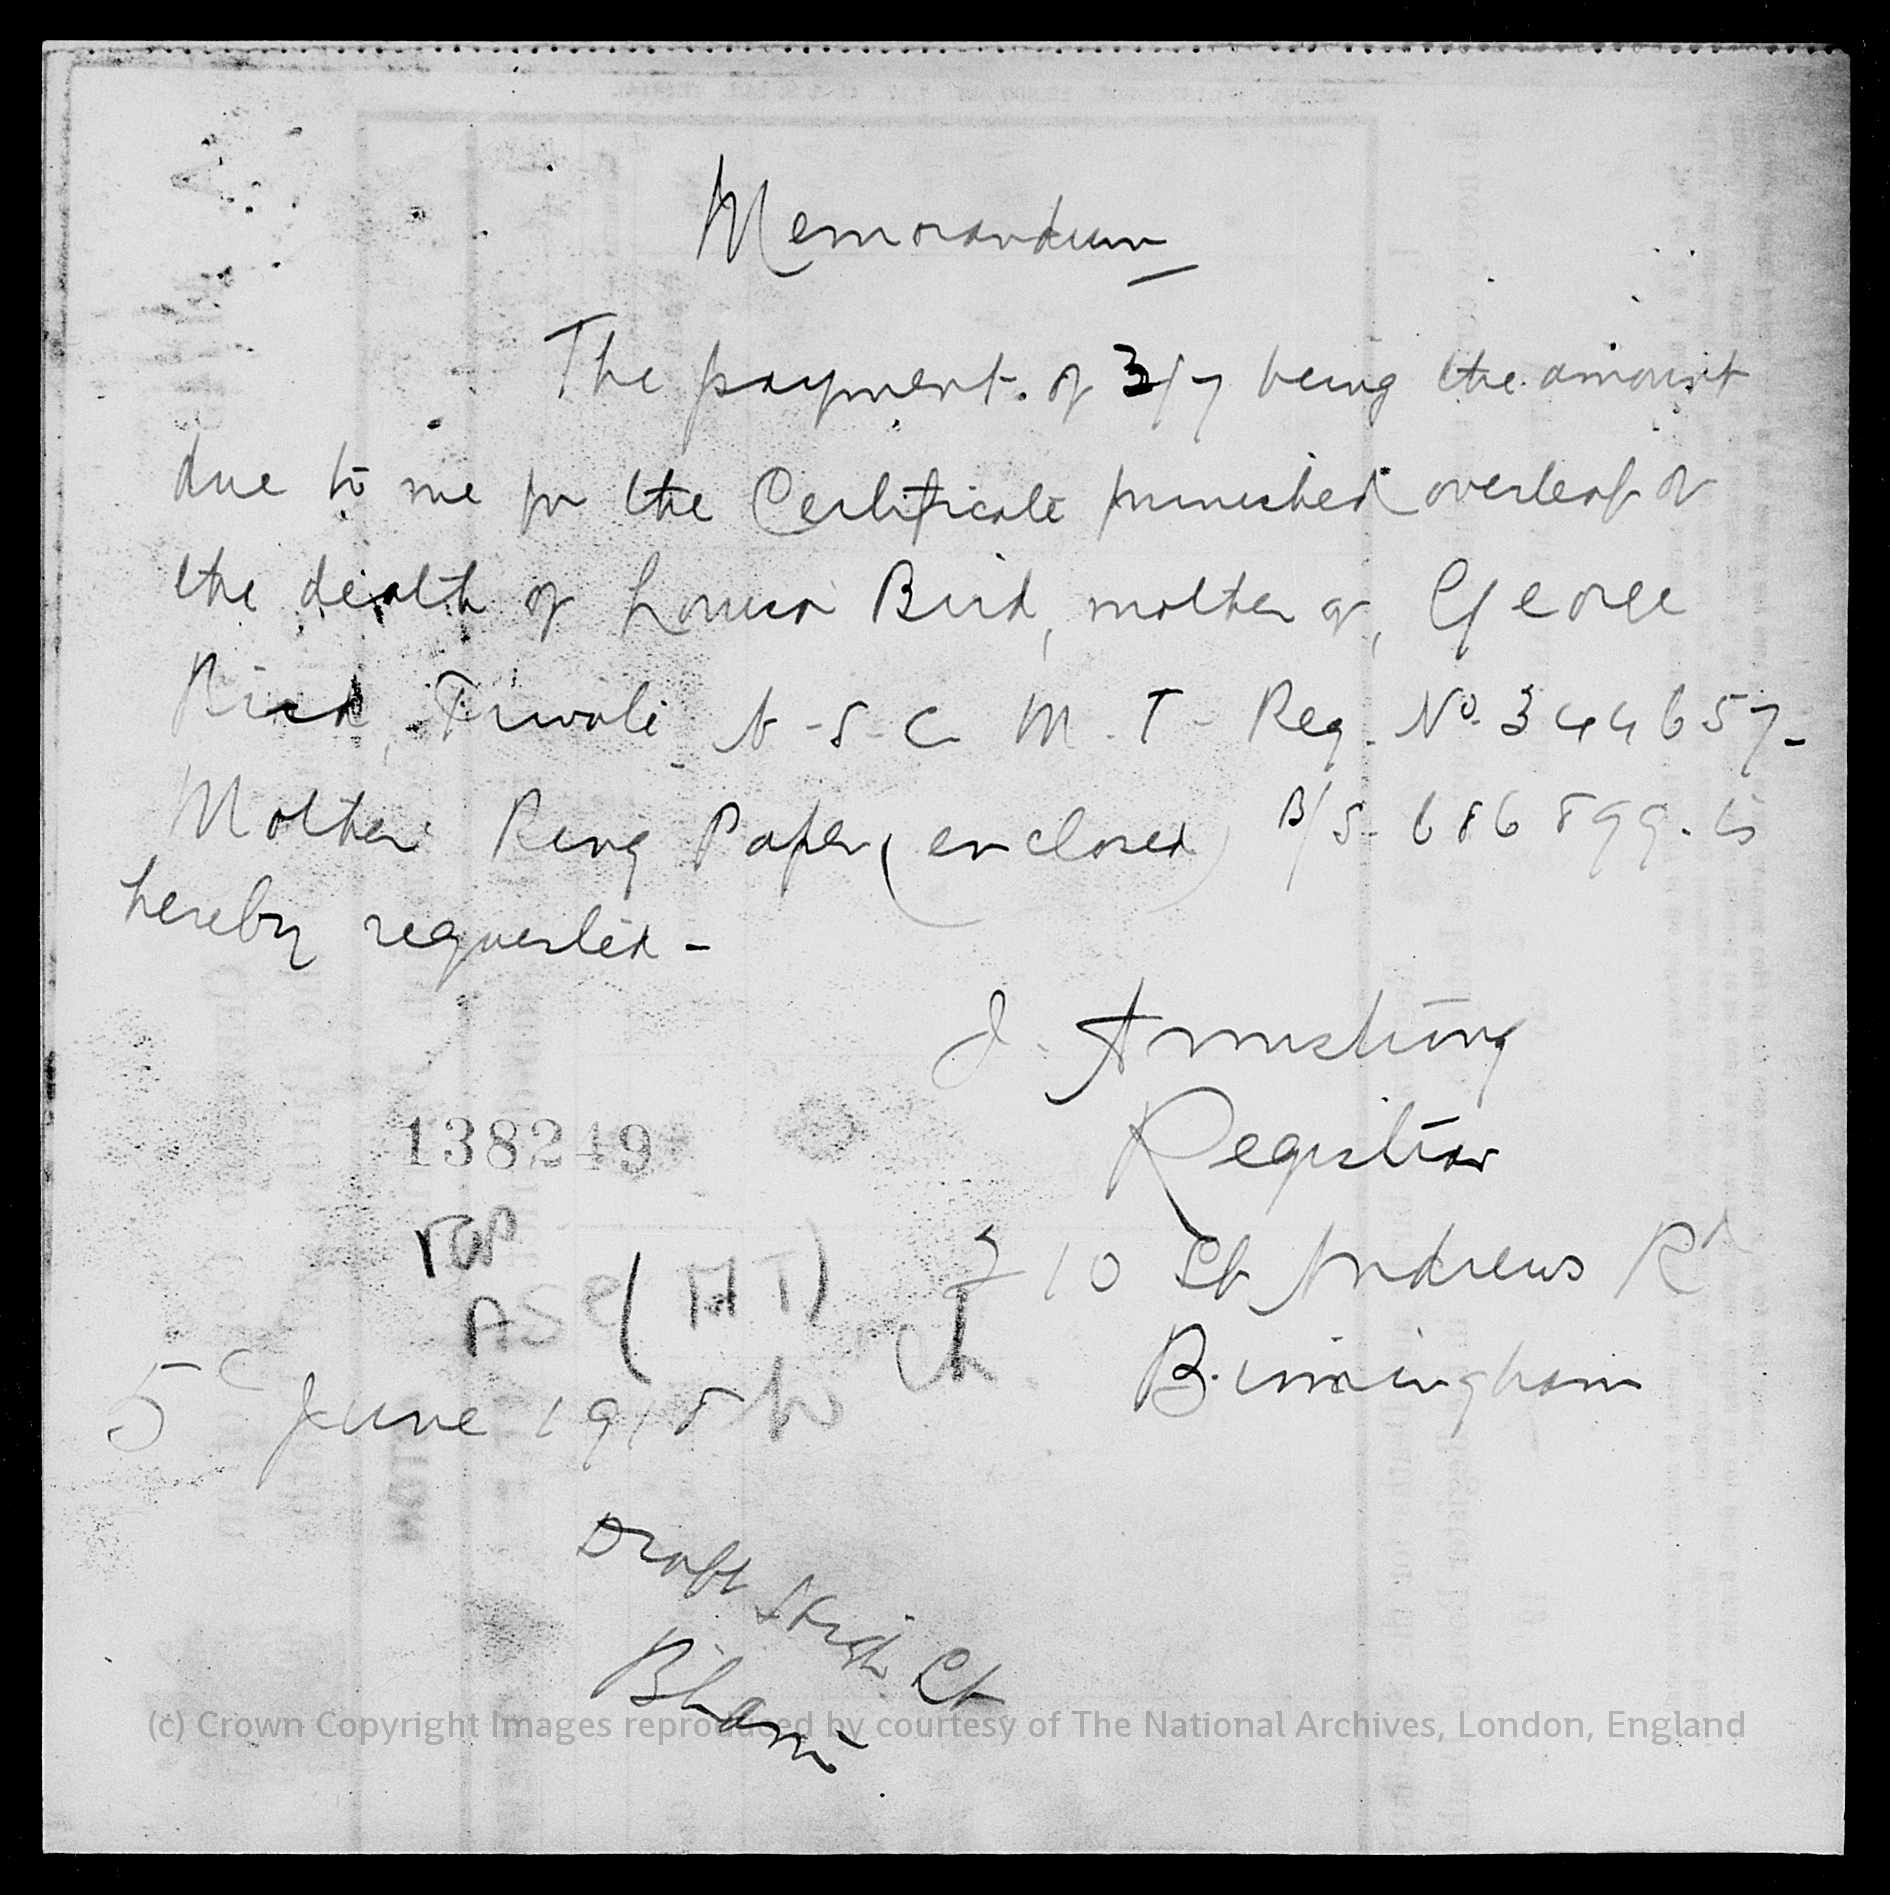 Memorandum
The payment of 3/7 being the amount
due to me for the Certificate furnished overleaf of
the death of Louisa Bird, mother of, George
Bird, Tivoli A-S-C M.T- Reg. No. 344657-
Mother Ring Paper (enclosed) B/S. 686899. is
hereby requested -
J. Armstrong
Registrar
138249
210 St Andrews Rd
ASC (MT)
Birmingham
5 June 1918
Draft
B'ham
(c) Crown Copyright Images reproduced by courtesy of The National Archives, London, England